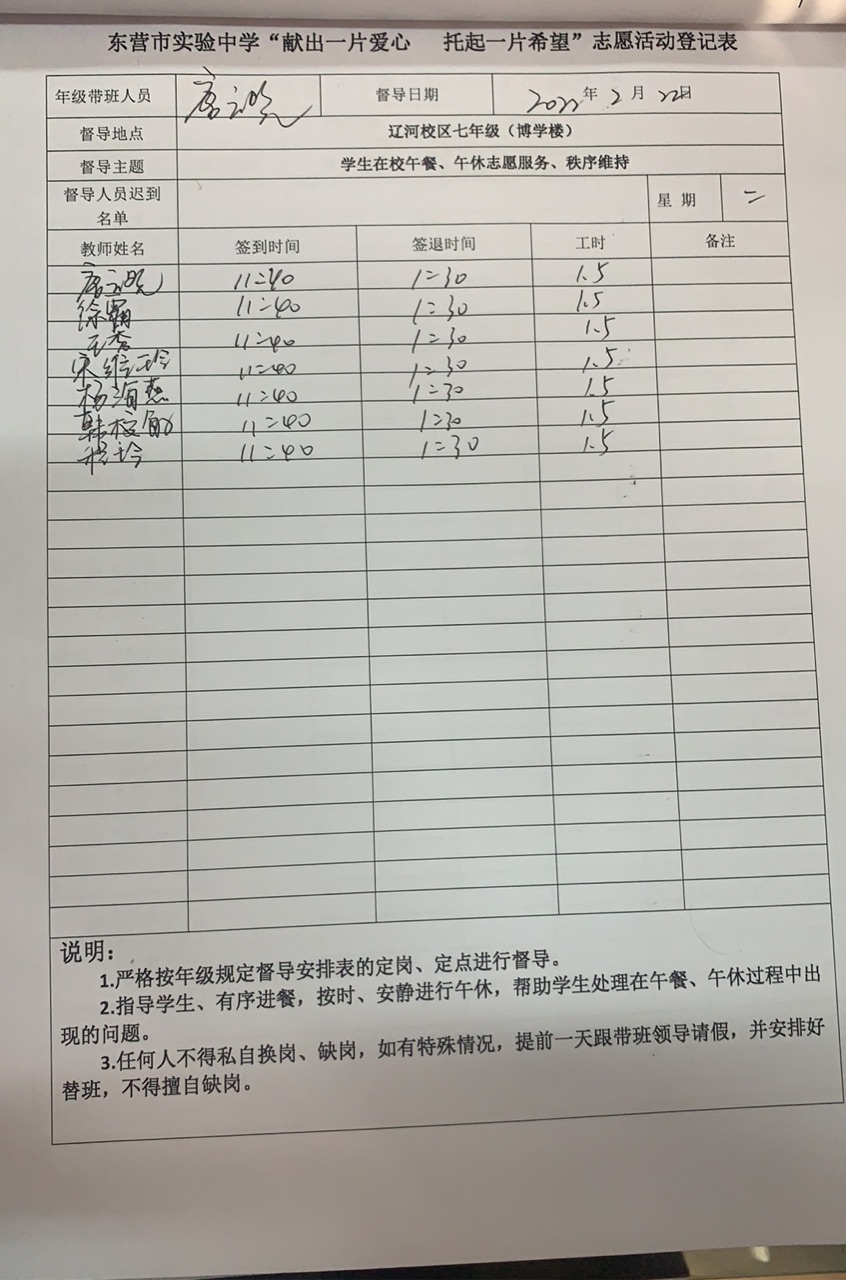 东营市实验中学“献出一片爱心 托起一片希望”志愿活动登记表
年级带班人员 督导日期 2022年2月22日
督导地点 辽河校区七年级（博学楼）
督导主题 学生在校午餐、午休志愿服务、秩序维持
督导人员迟到名单 星期 二
教师姓名 签到时间 签退时间 工时 备注
11:40 1:30 1.5
徐霸 11:40 1:30 1.5
王秀 11:40 1:30 1.5
宋维玲 11:40 1:30 1.5
杨海燕 11:40 1:30 1.5
韩 11:40 1:30 1.5
程玲 11:40 1:30 1.5
说明：
1.严格按年级规定督导安排表的定岗、定点进行督导。
2.指导学生、有序进餐，按时、安静进行午休，帮助学生处理在午餐、午休过程中出
现的问题。
3.任何人不得私自换岗、缺岗，如有特殊情况，提前一天跟带班领导请假，并安排好
替班，不得擅自缺岗。